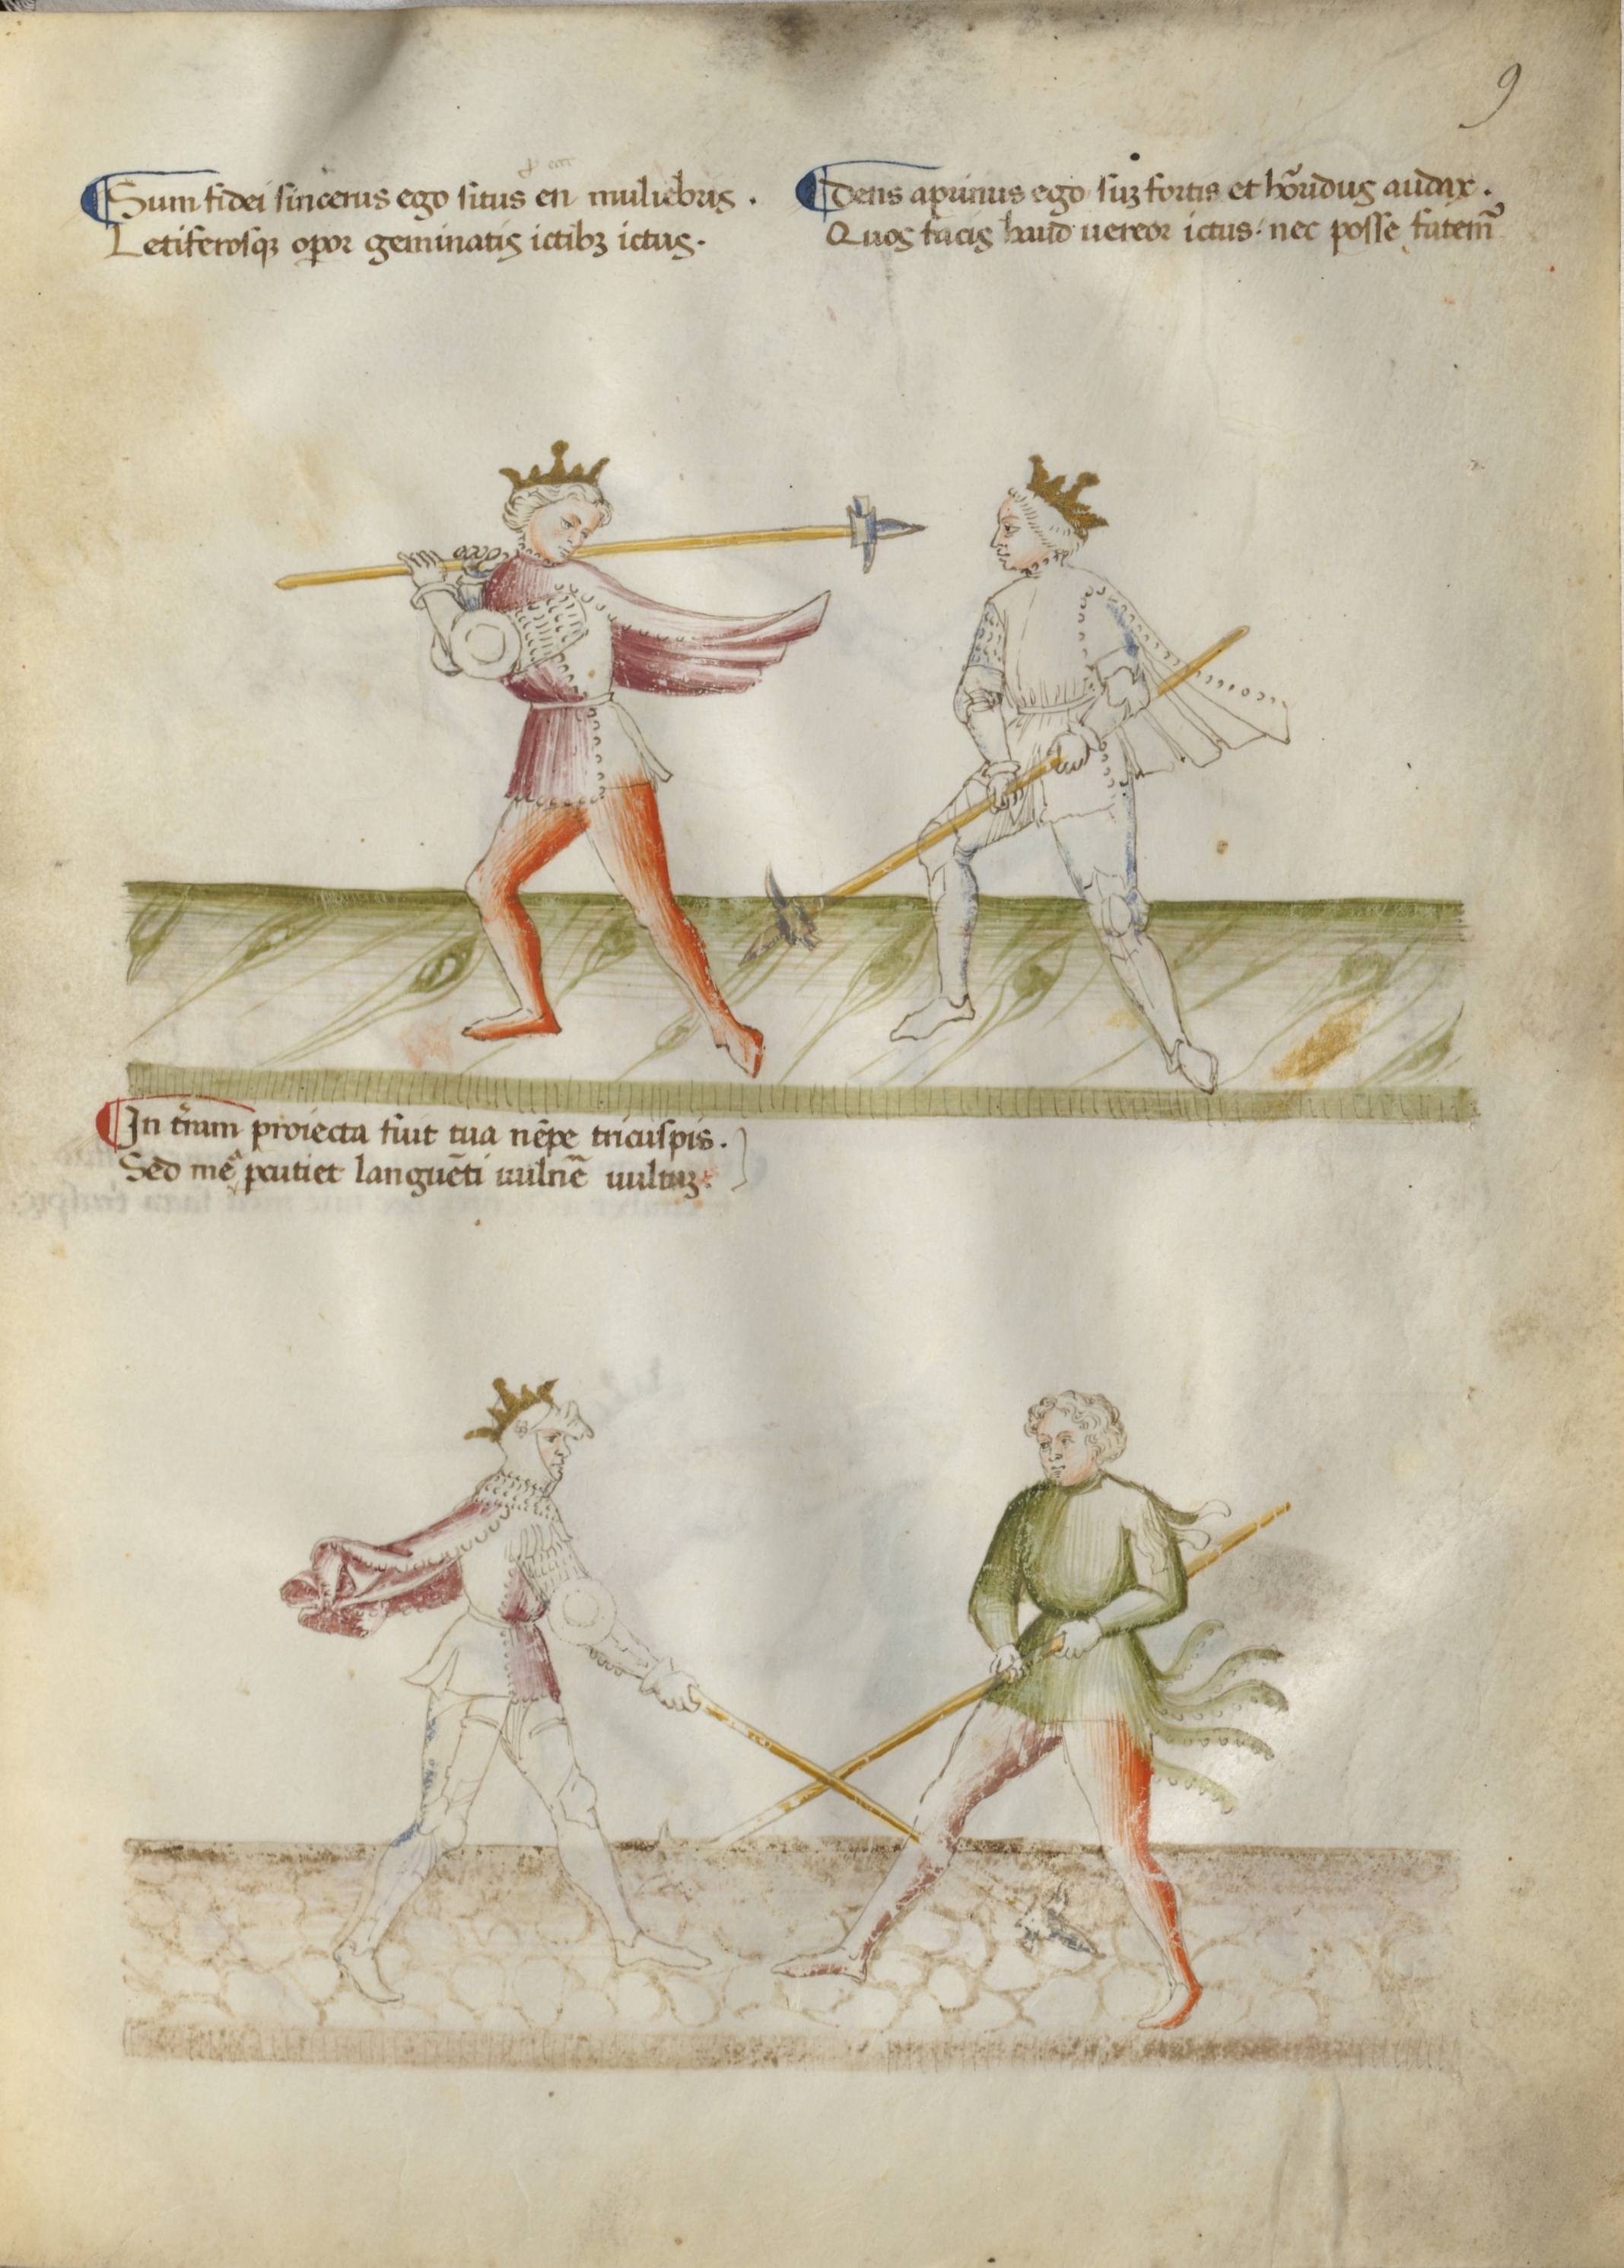 9
Sum fidei sincerus ego situs en muliebris .
Letiferosqꝫ opor geminatis ictibꝫ ictus.
Dens aprinus ego suꝫ fortis et hõridus audax .
Quos facis haud uereor ictus. nec posse fatem̃
In tr̃am proiecta fuit tua nẽpe tricuspis .
Sed meᵃ pcutiet languẽti uulnẽ uultuꝫ.